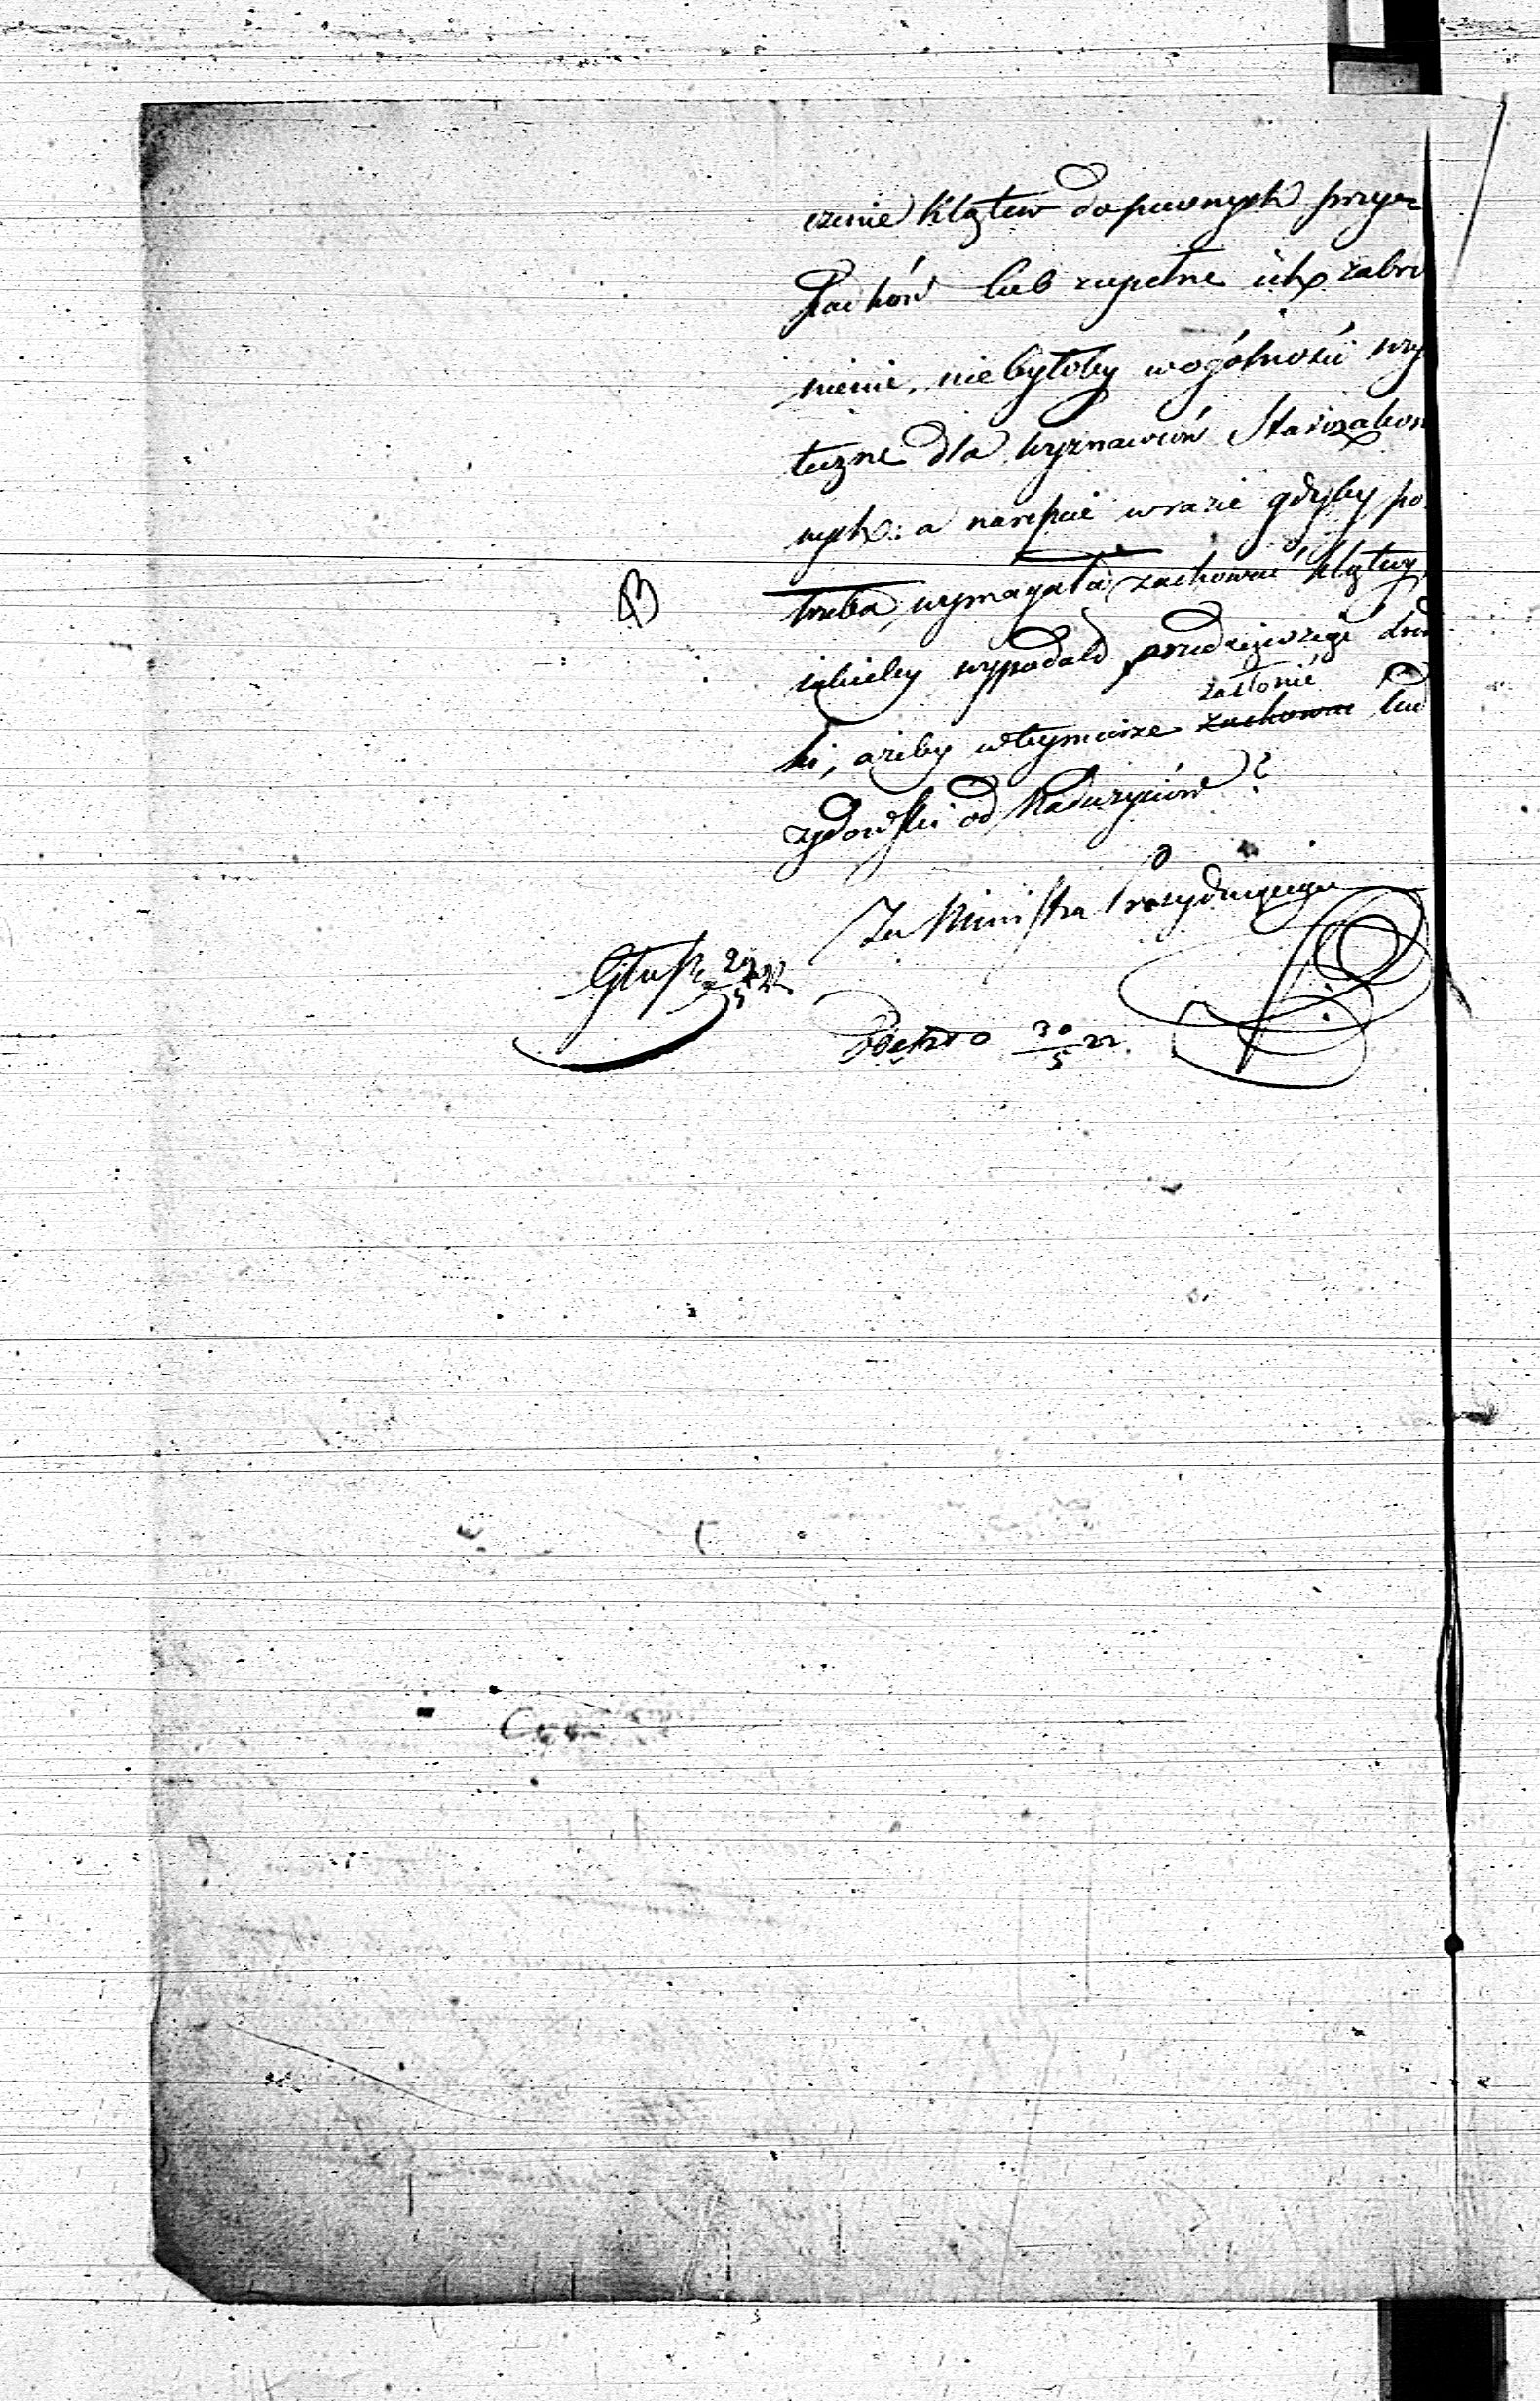 czenie klątew do pewnych przy
padków lub zupełne ich zabro
nienie, niebyłoby wogólności uży
teczne dla wyznawców Starozakon
nych: a nareszcie wrazie gdyby po
trzeba wymagała zachować klątwy,
iakieby wypadało przedsięwziąć środ
ki, ażeby wtymwzrze zasłonić zachować lud
żydowski od Nadużyciów?
Za Ministra Prezydującego
29/5 22
30/5 22.